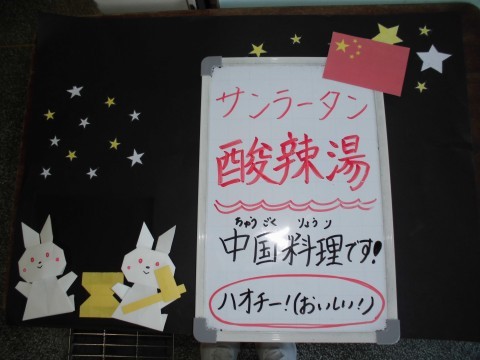 サンラータン
酸辣湯
ちゅうごく りょうり
中国料理です!
ハオチー!(おいしい!)